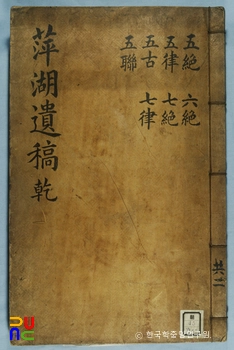 萍湖遺稿 乾
五絶 六絶
五律 七絶
五古 七律
五聯
共二
© 한국학중앙연구원